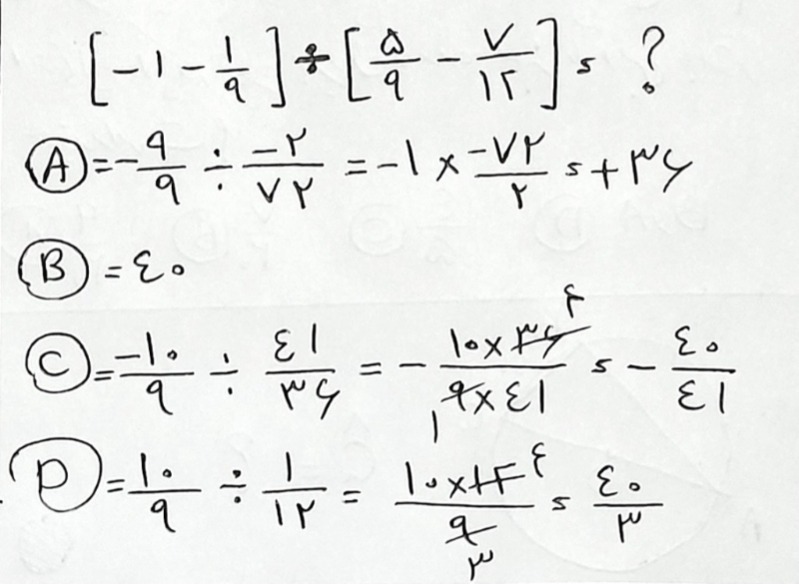 [-۱ - ۱/۹] ÷ [۵/۹ - ۷/۱۲] = ?
Ⓐ = -۹/۹ ÷ -۲/۷۲ = -۱ × -۷۲/۲ = +۳۶
Ⓑ = ۴۰
Ⓒ = -۱۰/۹ ÷ ۴۱/۳۶ = - ۱۰×۳۶ ۴/۹×۴۱ ۱ = - ۴۰/۴۱
Ⓓ = ۱۰/۹ ÷ ۱/۱۲ = ۱۰×۱۲ ۴/۹ ۳ = ۴۰/۳